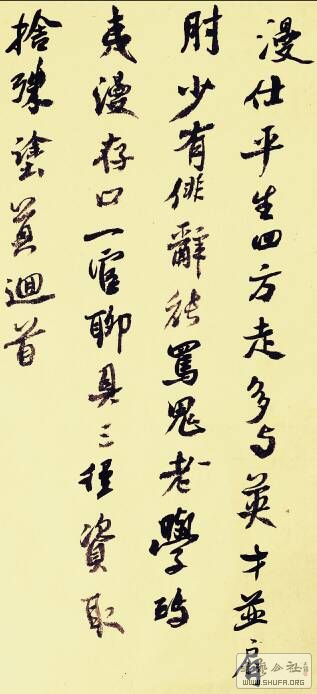 漫仕平生四方走多与英才並肩
肘少有俳辭能罵鬼老學鴟
夷漫存口一官聊具三徑資取
捨殊塗莫迴首
WWW.SHUFA.ORG